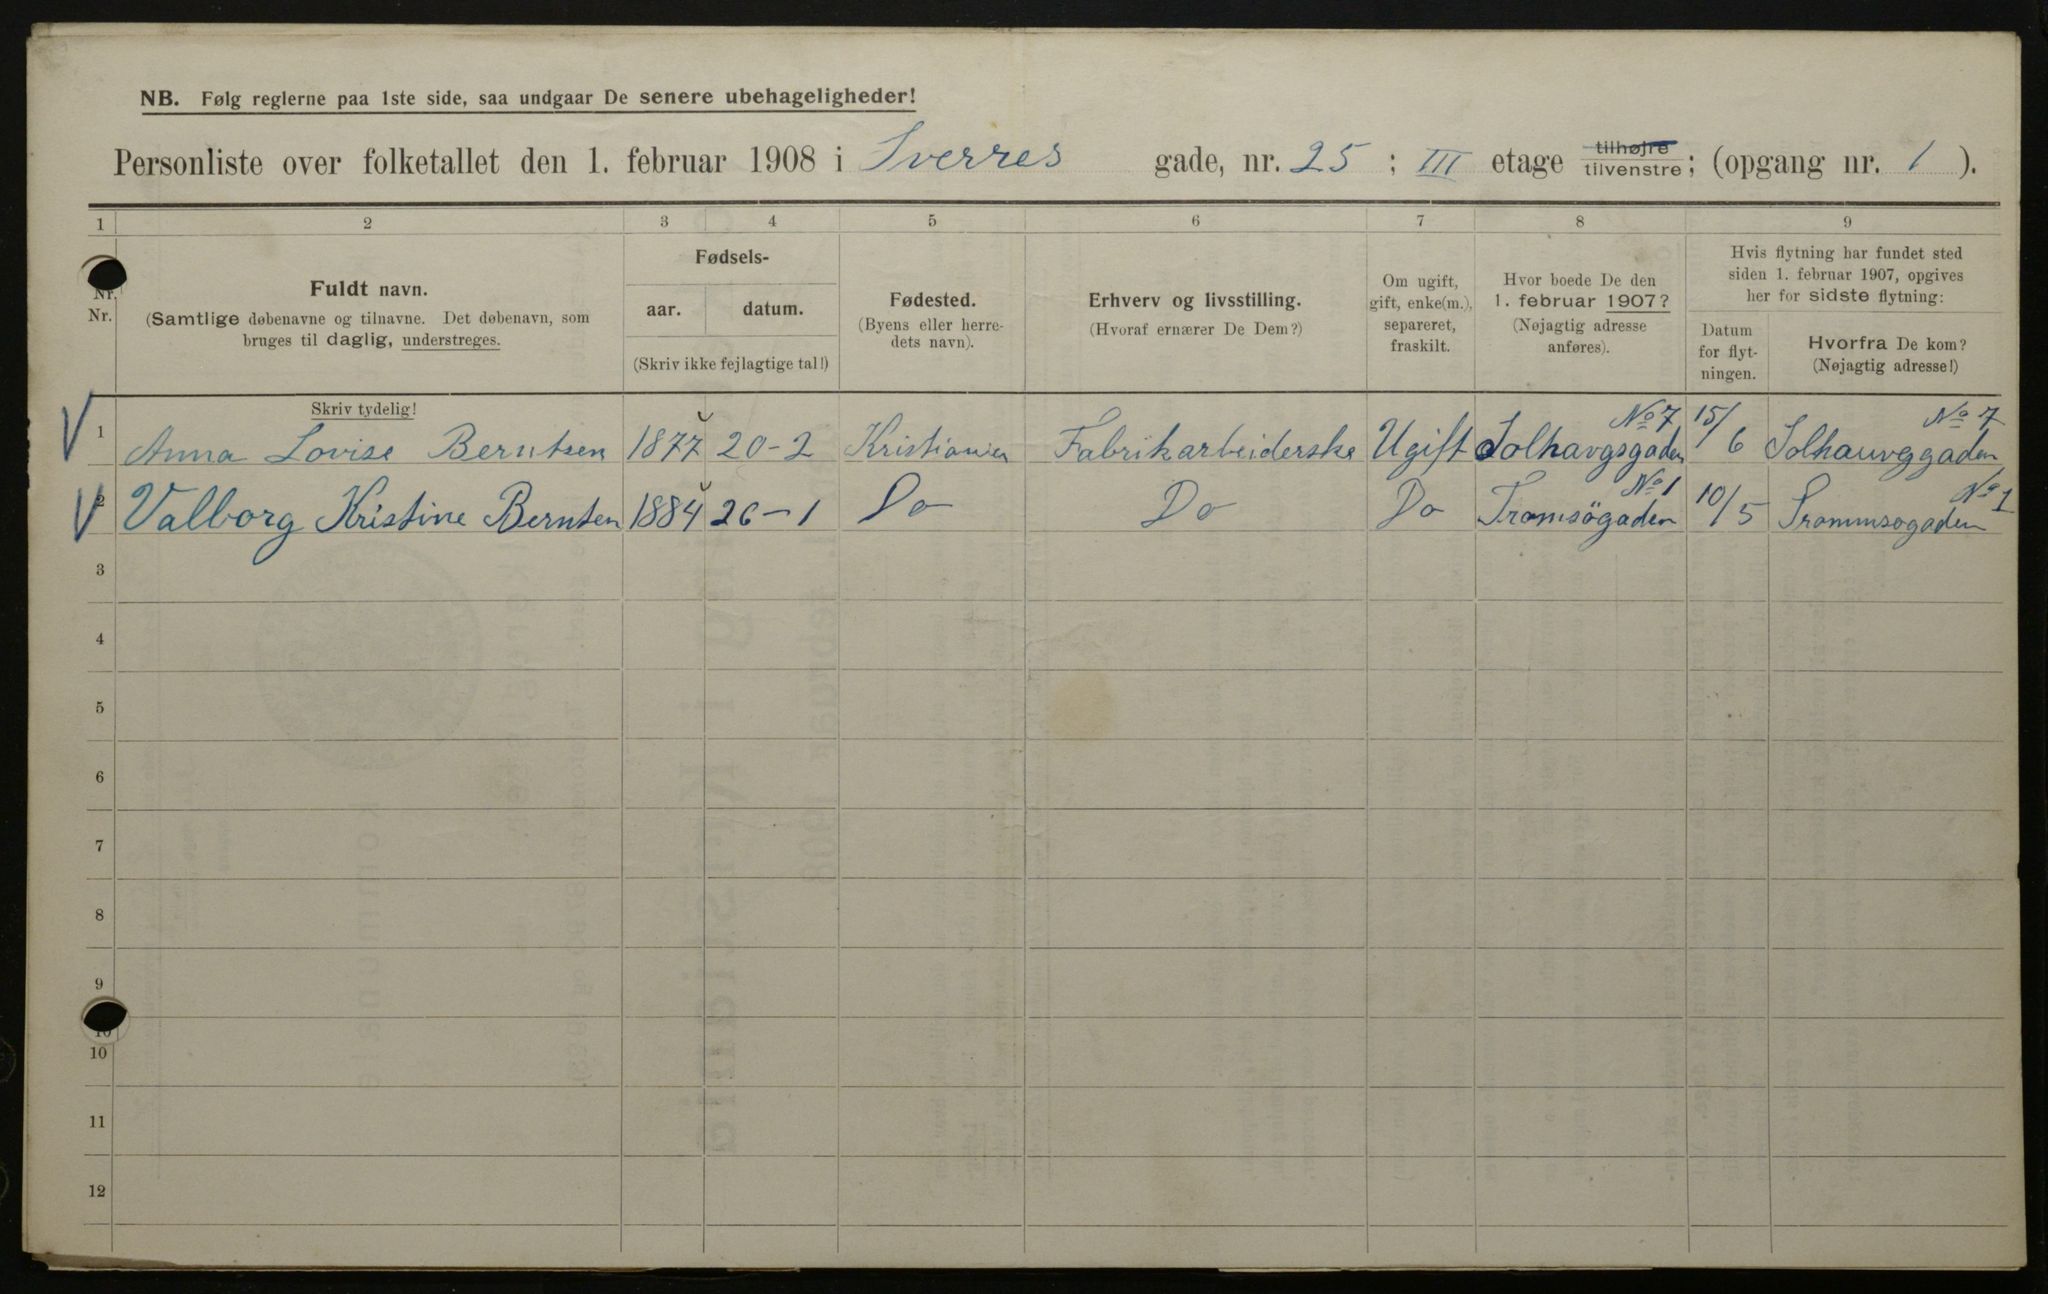 NB. Følg reglerne paa 1ste side, saa undgaar De senere ubehageligheder!
Personliste over folketallet den 1. februar 1908 i Sverres gade, nr. 25 ; III etage tilhøjre/tilvenstre; (opgang nr. 1 ).
1 2 3 4 5 6 7 8 9
Nr. Nr.
Fuldt navn.
(Samtlige døbenavne og tilnavne. Det døbenavn, som
bruges til daglig, understreges.
Skriv tydelig!
Fødsels-
aar. datum.
(Skriv ikke fejlagtige tal!)
Fødested.
(Byens eller herre-
dets navn).
Erhverv og livsstilling.
(Hvoraf ernærer De Dem?)
Om ugift,
gift, enke(m.),
separeret,
fraskilt.
Hvor boede De den
1. februar 1907?
(Nøjagtig adresse
anføres).
Hvis flytning har fundet sted
siden 1. februar 1907, opgives
her for sidste flytning:
Datum
for flyt-
ningen.
Hvorfra De kom?
(Nøjagtig adresse!)
1 Anna Lovise Berntsen 1877 20-2 Kristiania Fabrikarbeiderske Ugift Solhavgsgaden No 7 15/6 Solhauvggaden No 7
2 Valborg Kristine Bernten 1884 26-1 Do Do Do Tromsögaden No 1 10/5 Trommsogaden No 1
3
4
5
6
7
8
9
10
10
11
12